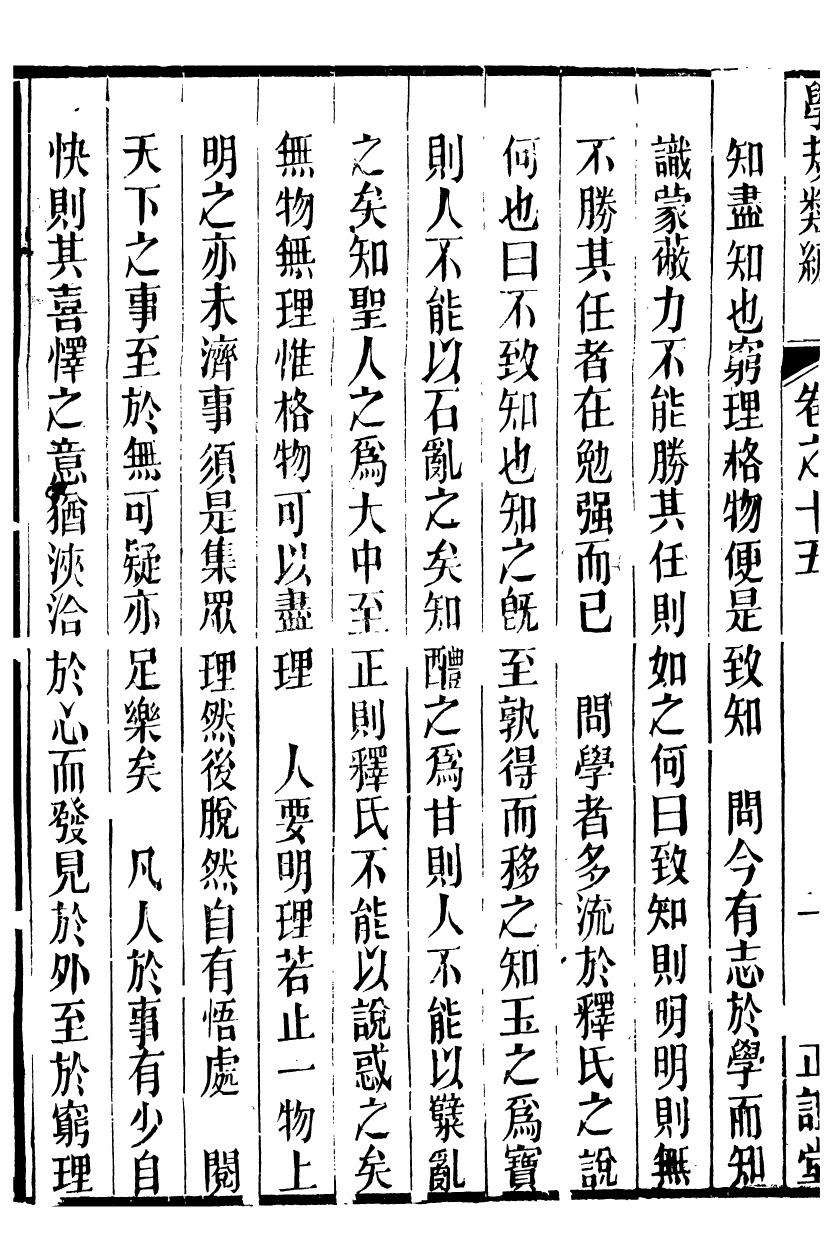 學規類編　卷之十五　一　正誼堂
知盡知也窮理格物便是致知　問今有志於學而知
識蒙蔽力不能勝其任則如之何曰致知則明明則無
不勝其任者在勉强而已　問學者多流於釋氏之說
何也曰不致知也知之旣至孰得而移之知玉之爲寶
則人不能以石亂之矣知醴之爲甘則人不能以糵亂
之矣知聖人之爲大中至正則釋氏不能以說惑之矣
無物無理惟格物可以盡理　人要明理若止一物上
明之亦未濟事須是集眾理然後脫然自有悟處　閱
天下之事至於無可疑亦足樂矣　凡人於事有少自
快則其喜懌之意猶浹洽於心而發見於外至於窮理